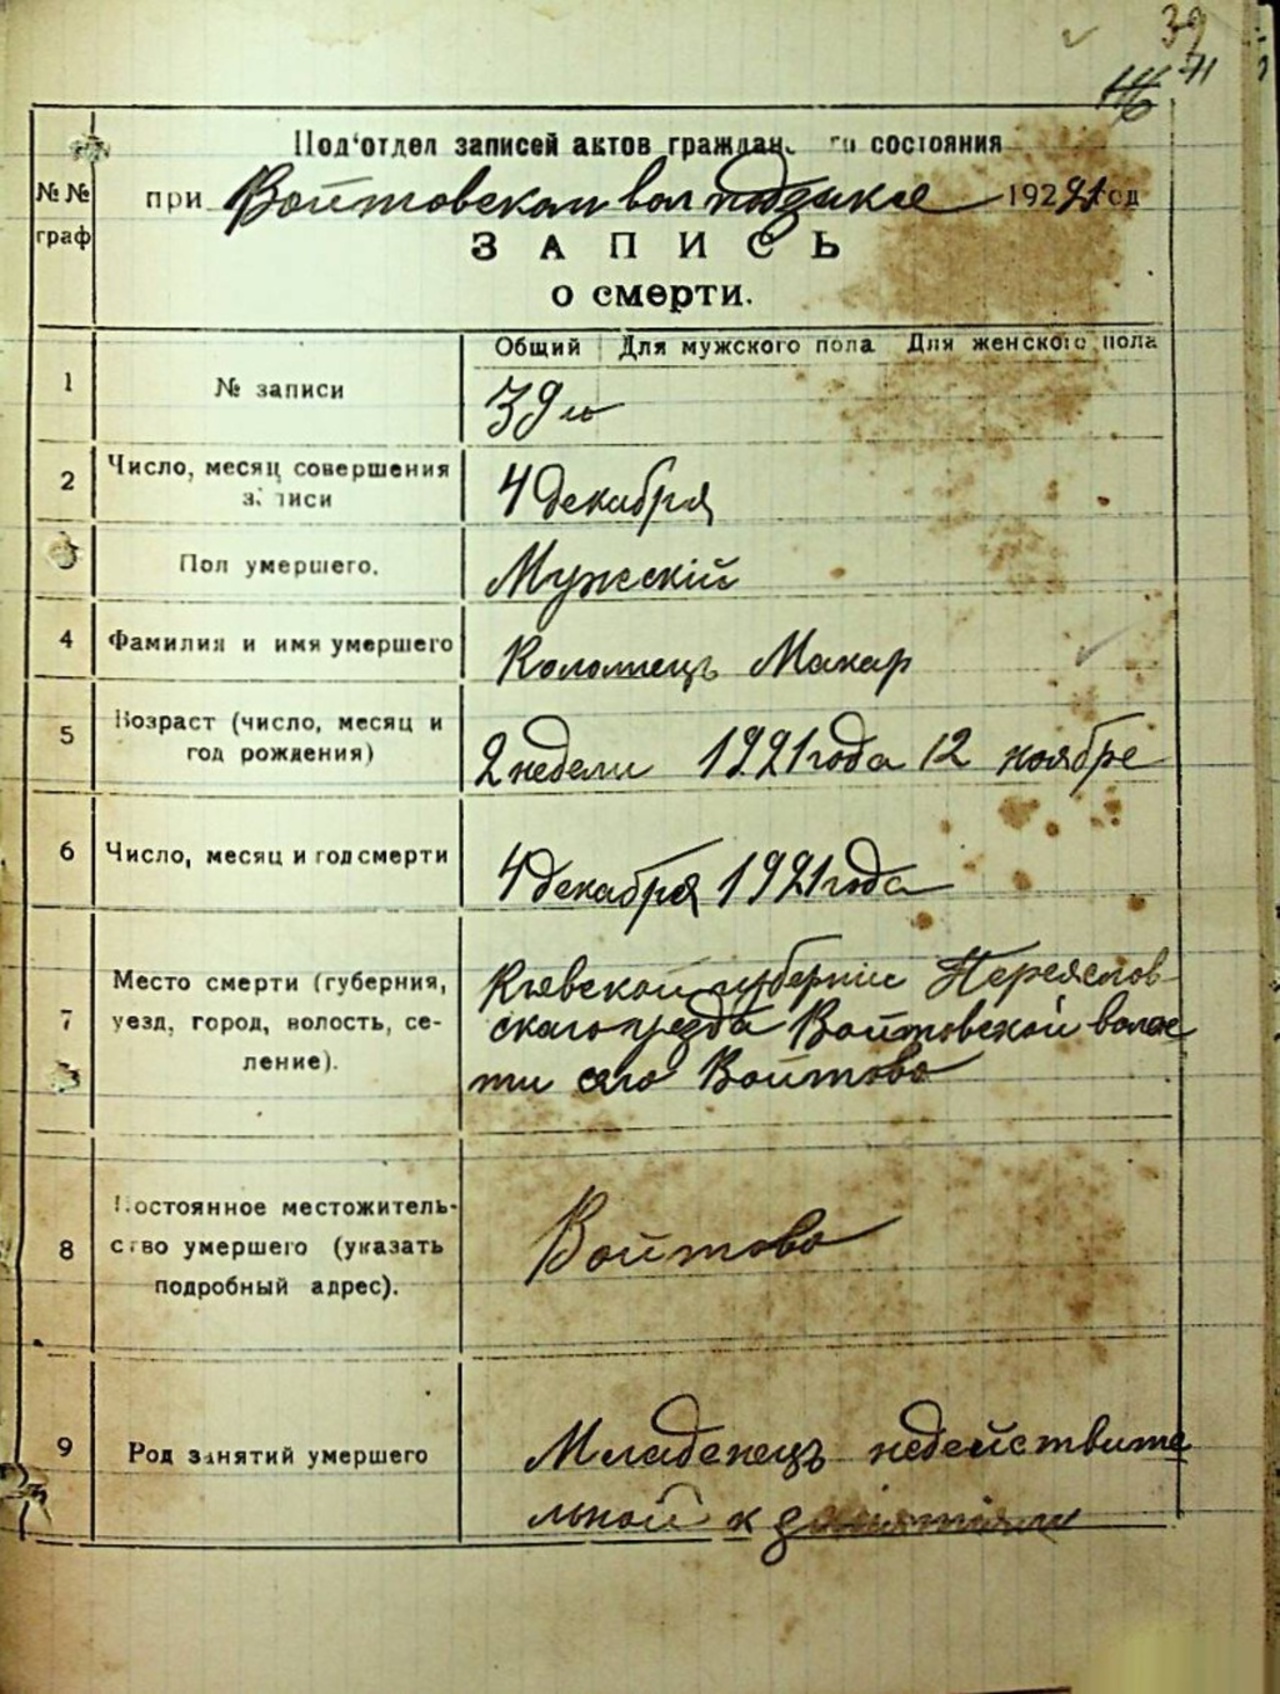 39
71
Под'отдел записей актов граждан. го состояния
№ №
граф
при Войтовском вол подзыке 1921 год
ЗАПИСЬ
о смерти.
Общий Для мужского пола Для женского пола
1 № записи 39й
2 Число, месяц совершения
записи
4 декабря
3 Пол умершего. Мужескій
4 Фамилия и имя умершего Коломецъ Макар
5 Возраст (число, месяц и
год рождения)
2 недели 1921 года 12 ноябре
6 Число, месяц и год смерти 4 декабря 1921 года
7 Место смерти (губерния,
уезд, город, волость, се-
ление).
Киевской губерніи Переяслов
скаго уезда Войтовской волос
ти село Войтово
8 Постоянное местожитель-
ство умершего (указать
подробный адрес).
Войтово
9 Род занятий умершего
Младенецъ недействите
льной к